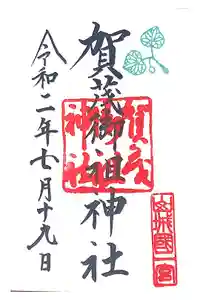 山城國一宮
賀茂御祖神社
賀茂神社
令和二年七月十九日